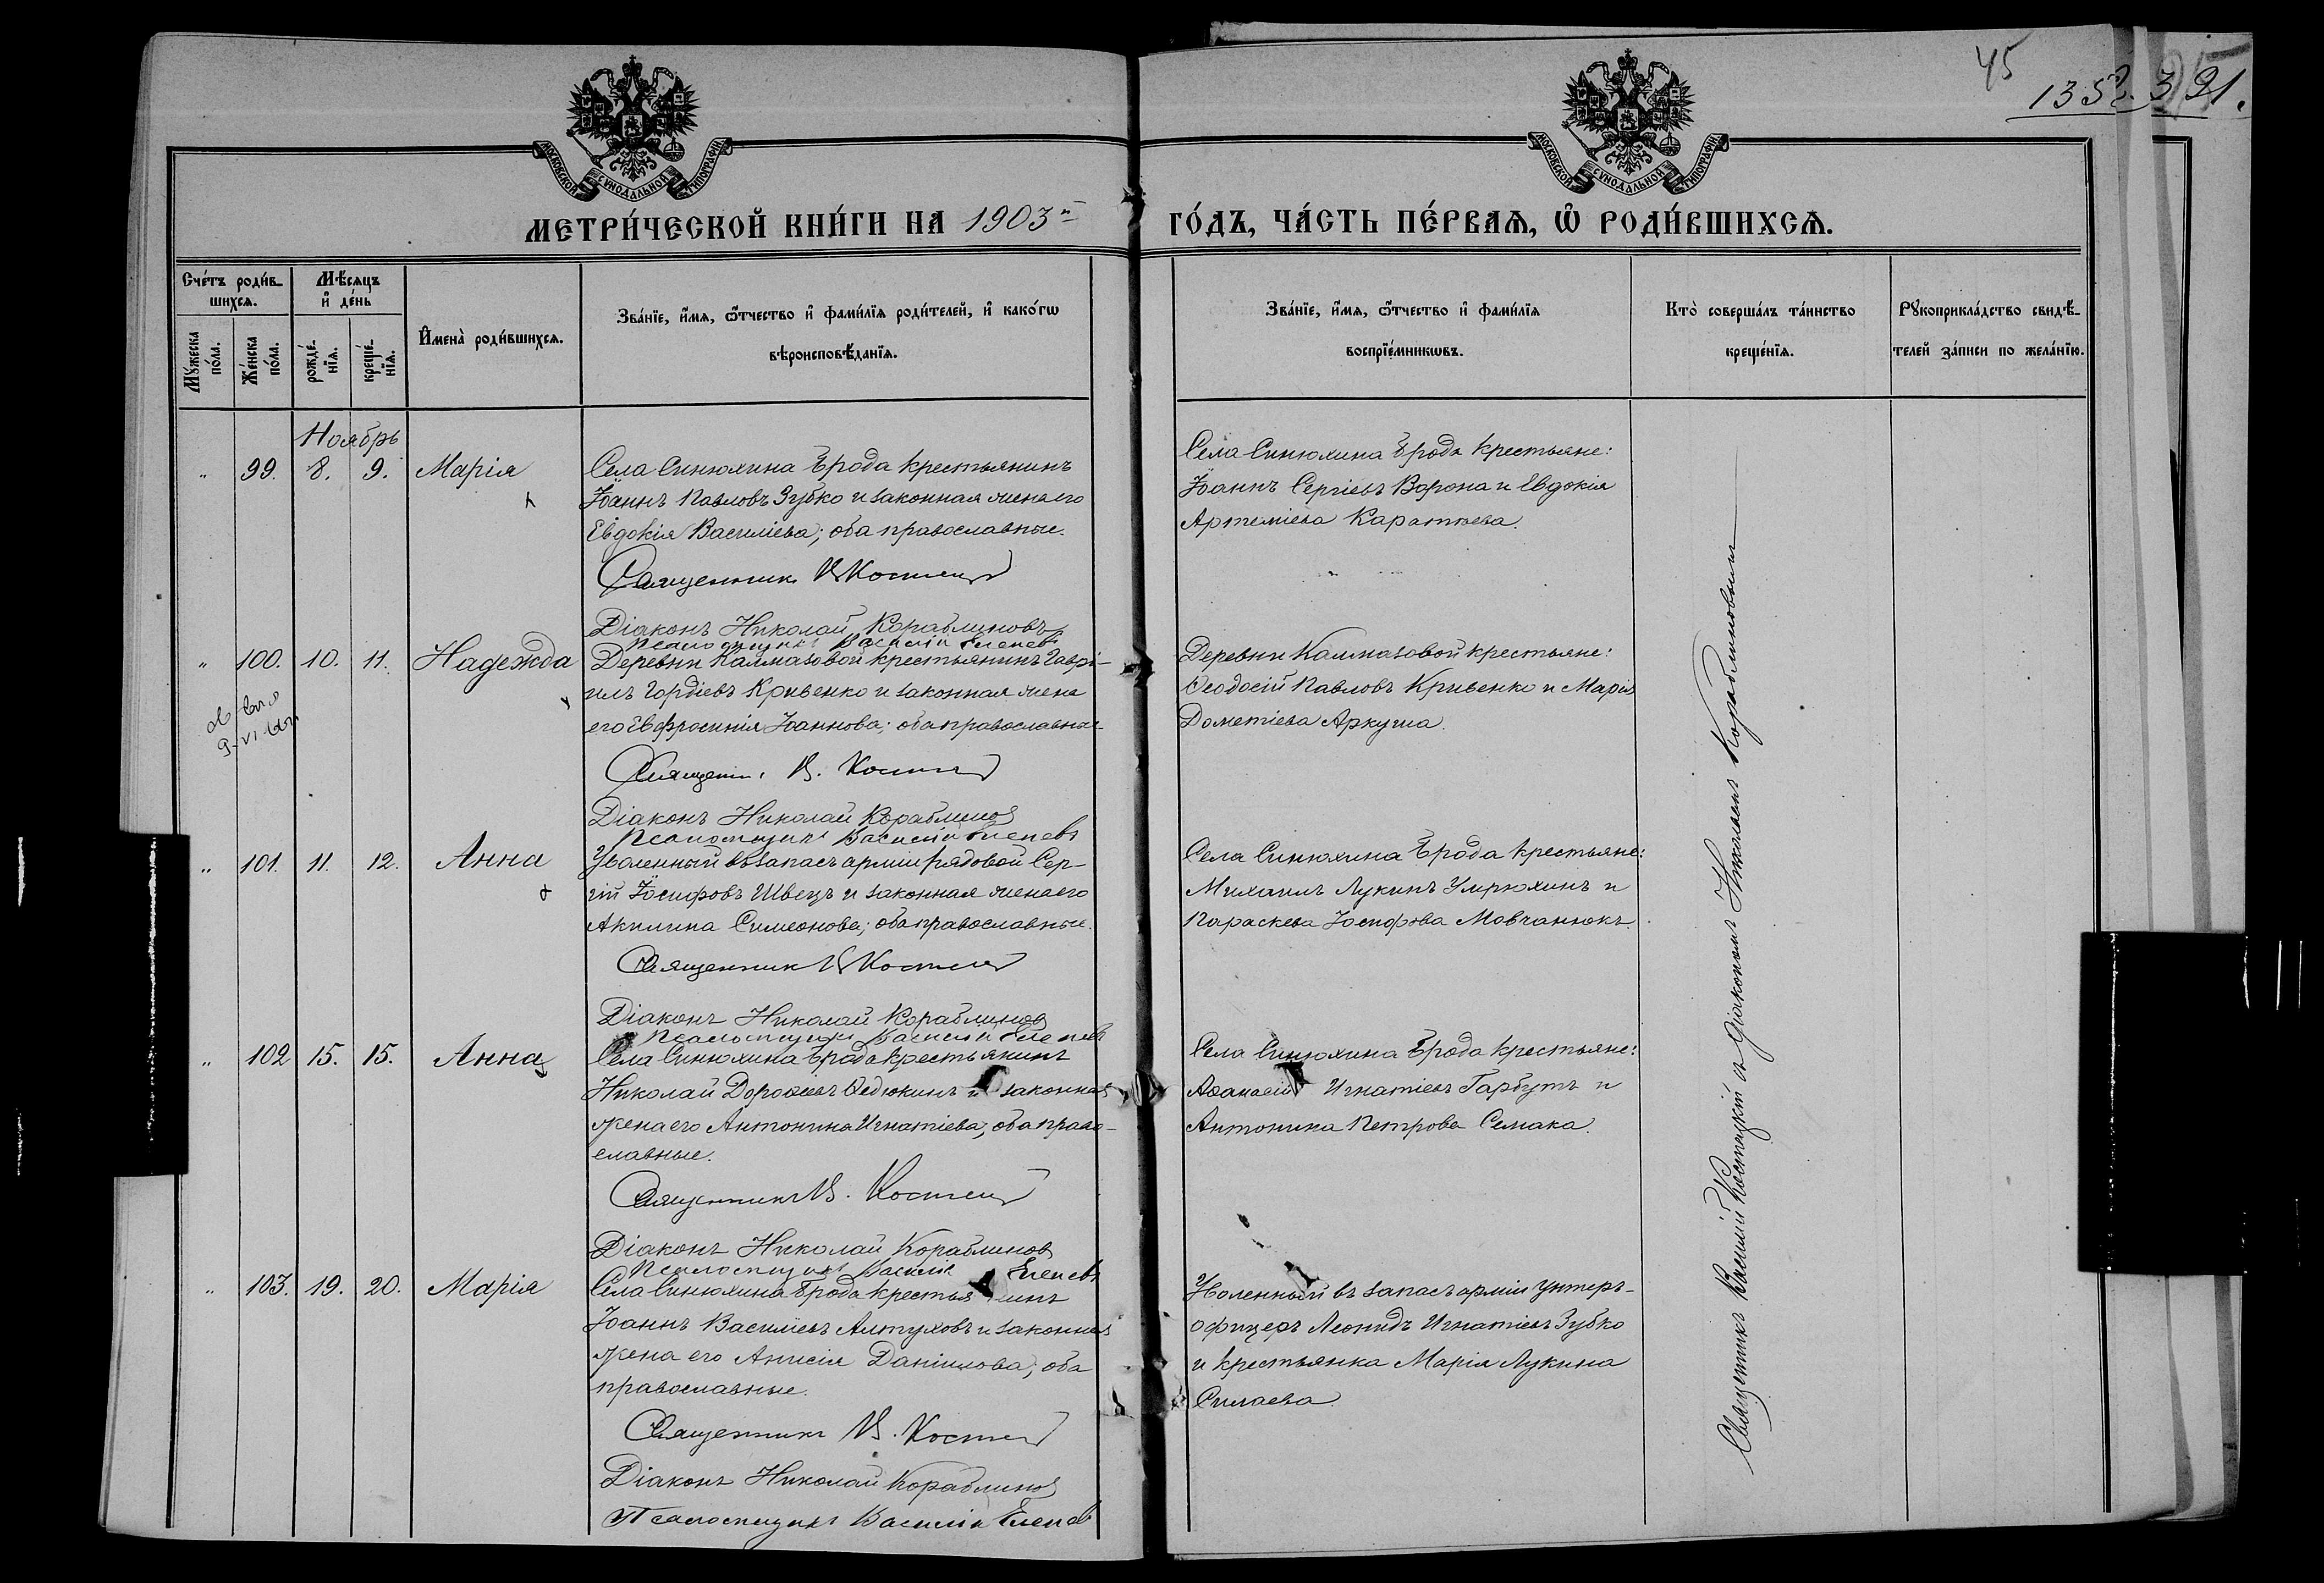 45
1352. 3 91.
МОСКОВСКОЙ СѴНОДАЛЬНОЙ ТИПОГРАФІИ
МОСКОВСКОЙ СѴНОДАЛЬНОЙ ТИПОГРАФІИ
МЕТРИ́ЧЕСКОЙ КНИ́ГИ НА 1903й ГО́ДЪ, ЧА́СТЬ ПЕ́РВАѦ, Ѡ҆ РОДИ́ВШИХСѦ.
Сче́тъ роди́в-
шихсѧ.
Мѣ́сѧцъ
и҆ де́нь
Мꙋ́жеска
по́ла.
Же́нска
по́ла.
рожде́-
нїѧ.
креще́-
нїѧ.
И҆мена̀ роди́вшихсѧ.
Зва́нїе, и҆́мѧ, ѻ҆́тчество и҆ фами́лїѧ роди́телей, и҆ како́гѡ
вѣроисповѣ́данїѧ.
Зва́нїе, и҆́мѧ, ѻ҆́тчество и҆ фами́лїѧ
воспрїе́мникѡвъ.
Кто̀ соверша́лъ та́инство
креще́нїѧ.
Рꙋкоприкла́дство свидѣ́-
телей за́писи по жела́нїю.
Ноябрь
" 99. 8. 9. Марія
Села Синюхина Брода крестьянинъ
Іоаннъ Павловъ Зубко и законная жена его
Евдокія Василіева; оба православные.
Священникъ В Костец
Діаконъ Николай Кораблиновъ
Псаломщикъ Василій Еленевъ
Села Синюхина Брода крестьяне:
Іоаннъ Сергіевъ Ворона и Евдокія
Артеміева Каратнева.
" 100. 10. 11. Надежда
Деревни Калмазовой крестьянинъ Гаврі-
илъ Гордіевъ Кривенко и законная жена
его Евфросинія Іоаннова; оба православные
Священ. В. Костец
Діаконъ Николай Кораблинов
Псаломщикъ Василій Еленевъ
Деревни Калмазовой крестьяне:
Ѳеодосій Павловъ Кривенко и Марія
Дометіева Аркуша.
" 101. 11. 12. Анна
Уволенный въ запасъ арміи рядовой Сер-
гій Іосифовъ Швецъ и законная жена его
Акилина Симеонова; оба православные.
Священник В Костец
Діаконъ Николай Кораблинов
Псаломщикъ Василій Еленевъ
Села Синюхина Брода крестьяне:
Михаилъ Лукинъ Умрюхинъ и
Параскева Іосифова Мовчанюкъ.
" 102 15. 15. Анна
Села Синюхина Брода крестьянинъ
Николай Дороѳеевъ Ѳедюкинъ и законная
жена его Антонина Игнатіева; оба право-
славные.
Священникъ В. Костец
Діаконъ Николай Кораблинов
Псаломщикъ Василій Еленевъ
Села Синюхина Брода крестьяне:
Аѳанасій Игнатіевъ Гарбутъ и
Антонина Петрова Семака.
" 103. 19. 20. Марія
Села Синюхина Брода крестьянинъ
Іоаннъ Василіевъ Алтуховъ и законная
жена его Анисія Даніилова; оба
православные.
Священникъ В. Костец
Діаконъ Николай Кораблинов
Псаломщикъ Василій Еленев
Уволенный въ запасъ арміи унтеръ-
офицеръ Леонидъ Игнатіевъ Зубко
и крестьянка Марія Лукина
Силаева.
Священникъ Василій Костецкій съ Діакономъ Николаемъ Кораблиновымъ